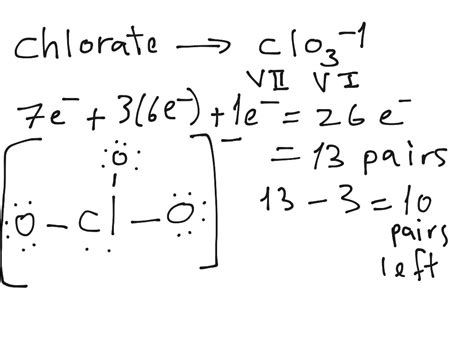 chlorate → ClO₃⁻¹
VII VI
7e⁻ + 3(6e⁻) + 1e⁻ = 26 e⁻
= 13 pairs
13 - 3 = 10
pairs
left
[ O
O - Cl - O ]⁻